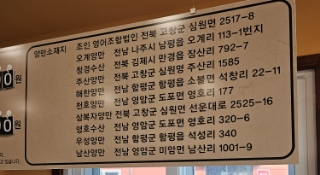 양만소재지 조인 영어조합법인 전북 고창군 심원면 2517-8
오계양만 전남 나주시 남평읍 오계리 113-1번지
창경수산 전북 김제시 만경읍 장산리 792-7
주산양만 전북 고창군 심원면 주산리 1585
해찬양만 전남 함평군 함평읍 석창리 22-11
천호양만 전남 영암군 도포면 영호리 177
삼복자양만 전북 고창군 심원면 선운대로 2525-16
영호수산 전남 영암군 도포면 영호리 320-6
우성양만 전남 함평군 함평읍 석성리 340
남산양만 전남 영암군 미암면 남산리 1001-9
0원
0원